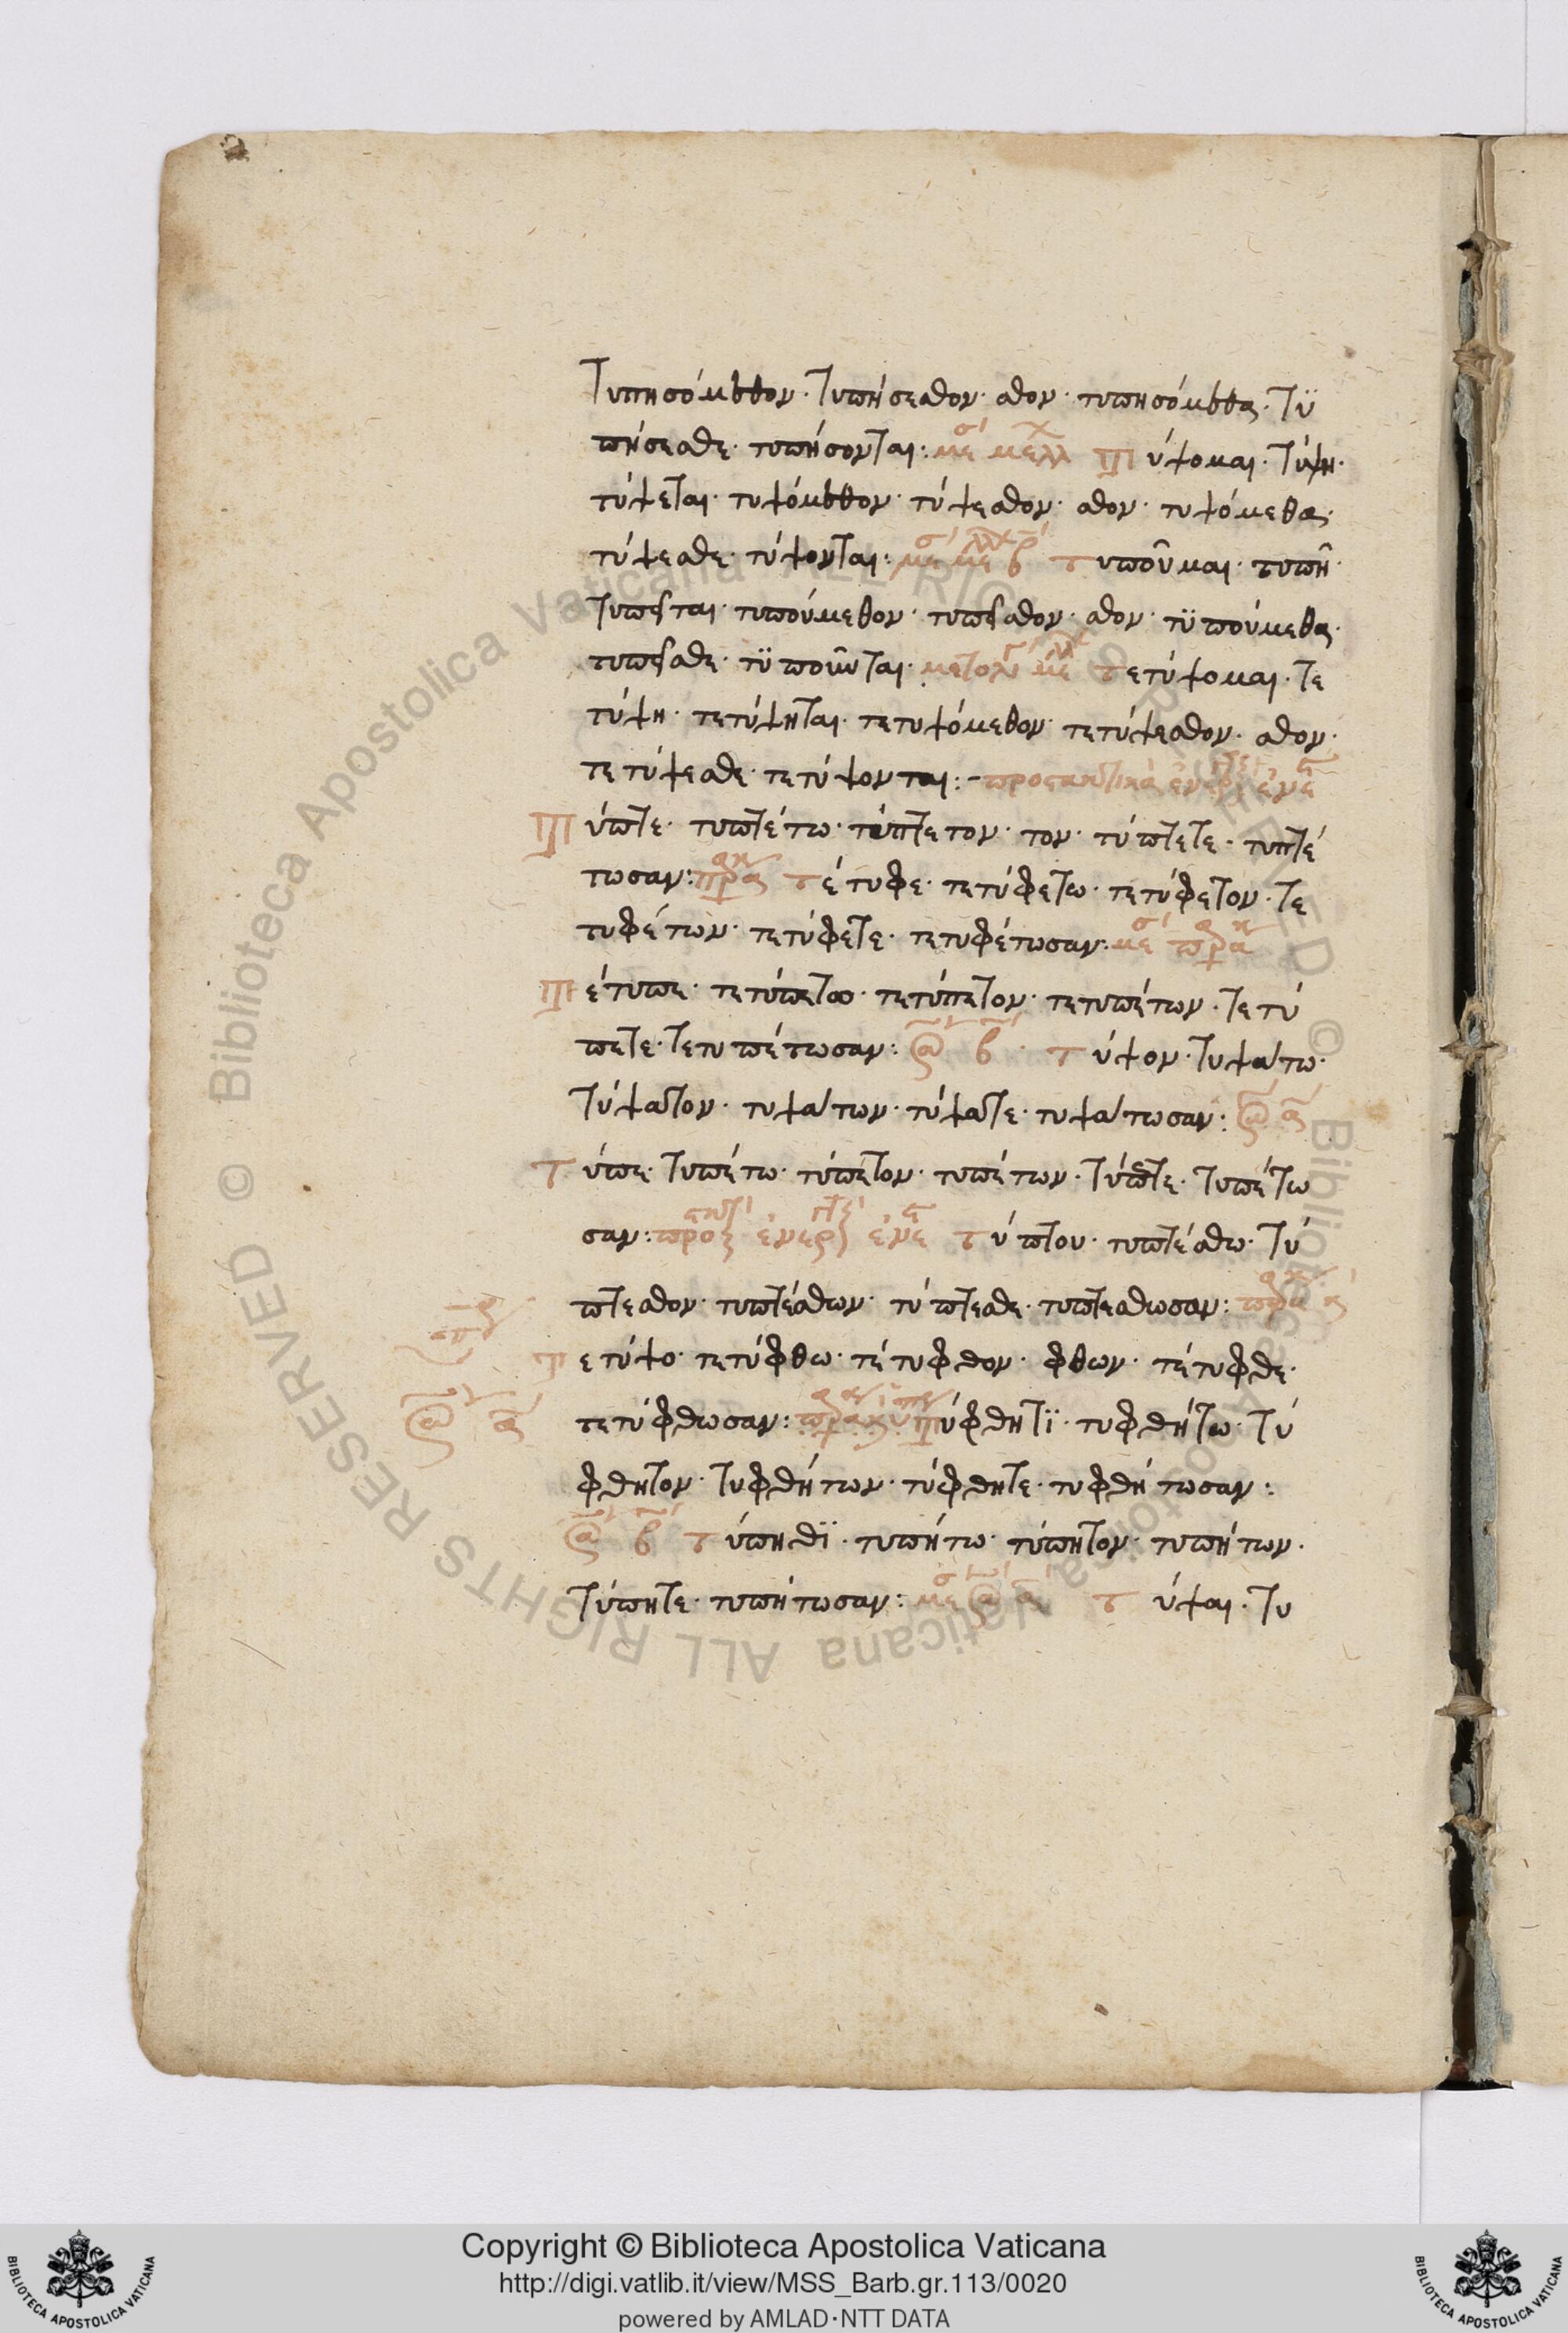 Τυπησόμεθον· τυπήσεσθον· σθον· τυπησόμεθα· τϋ
πήσεσθε· τυπήσονται: μέσ μελλ τύψομαι· τύψη·
τύψεται· τυψόμεθον· τύψεσθον· σθον· τυψόμεθα·
τύψεσθε· τύψονται: τυποῦμαι· τυπῆ·
τυπεῖται· τυπούμεθον· τυπεῖσθον· σθον· τϋπούμεθα·
τυπεῖσθε· τϋποῦνται· τετύψομαι· τε
τύψη· τετύψηται· τετυψόμεθον· τετύψεσθον· σθον·
τετύψεσθε· τετύψονται:- προστακτικὰ
τύπτε· τυπτέτω· τύπτετον· τον· τύπτετε· τυπτέ
τωσαν: τέτυφε· τετυφέτω· τετύφετον· τε
τυφέτων· τετύφετε· τετυφέτωσαν:
τέτυπε· τετύπετω· τετύπετον· τετυπέτων· τετύ
πετε· τετυπέτωσαν: τύψον· τυψάτω·
τύψατον· τυψάτων· τύψατε· τυψάτωσαν:
τύπε· τυπέτω· τύπετον· τυπέτων· τύπετε· τυπέτω
σαν: τύπτου· τυπτέσθω· τύ
πτεσθον· τυπτέσθων· τύπτεσθε· τυπτεσθωσαν:
τετύψο· τετύφθω· τέτυφθον· φθων· τέτυφθε·
τετύφθωσαν: τύφθητϊ· τυφθήτω· τύ
φθητον· τυφθήτων· τύφθητε· τυφθήτωσαν:
τύπηθϊ· τυπήτω· τύπητον· τυπήτων·
τύπητε· τυπήτωσαν: τύψαι· τυ
Copyright © Biblioteca Apostolica Vaticana
http://digi.vatlib.it/view/MSS_Barb.gr.113/0020
powered by AMLAD·NTT DATA